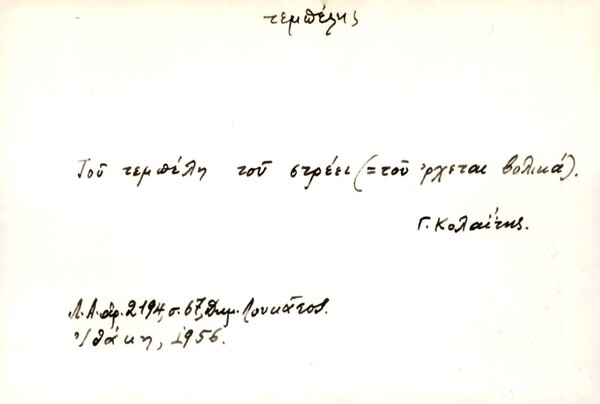 τεμπέλης
Τοῦ τεμπέλη τοῦ στρέει (=τοῦ ἔρχεται βολικά).
Γ. Κολαΐτης.
Λ.Α. ἀρ. 2194, σ. 67, Δημ. Λουκᾶτος.
Ἰθάκη, 1956.